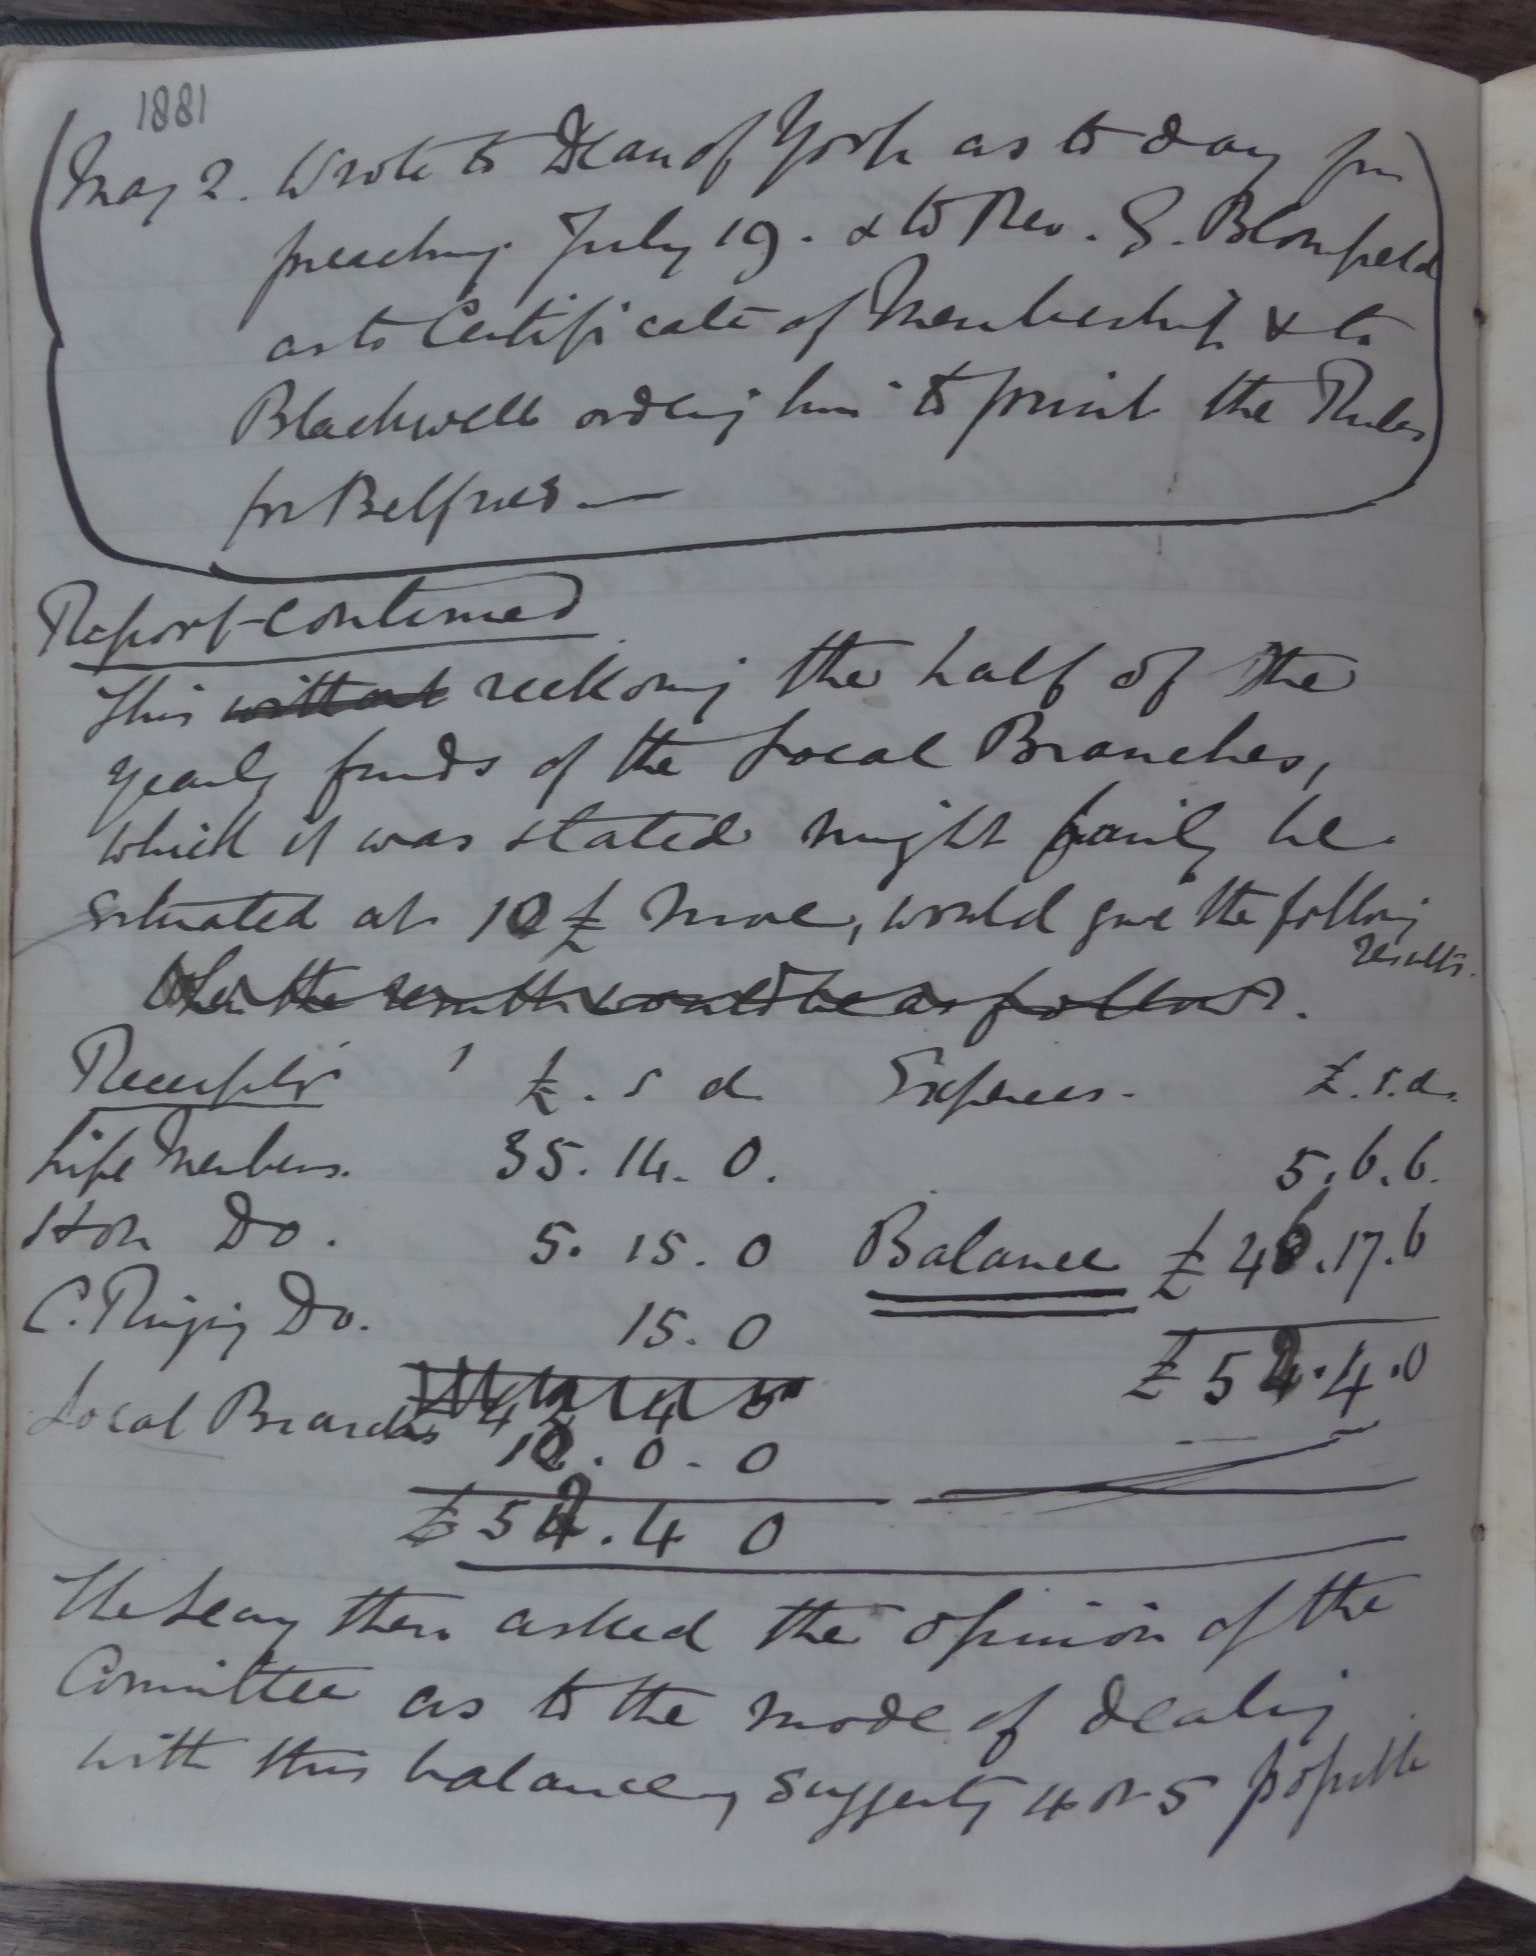 1881
May 2. Wrote to Dean of York as to day for
preaching July 19. & to Rev. G. Blomfield
as to Certificate of Membership & to
Blackwell ordering him to print the Rules
for Belfries —
Report-continued
This without reckoning the half of the
yearly funds of the Local Branches,
which it was stated might fairly be
estimated at 12 £ more, would give the following
results.
the results would be as follows.
Receipts £. s d. Expences. £.s.d.
Life Members. 35.14.0. 5.6.6.
Hon Do. 5.15.0 Balance £48.17.6
C. Ringing Do. 15.0 £54.4.0
42 4 0
Local Branches 12.0.0
£54.4 0
The Secy then asked the opinion of the
Committee as to the mode of dealing
with this balance, suggesting 4 or 5 possible